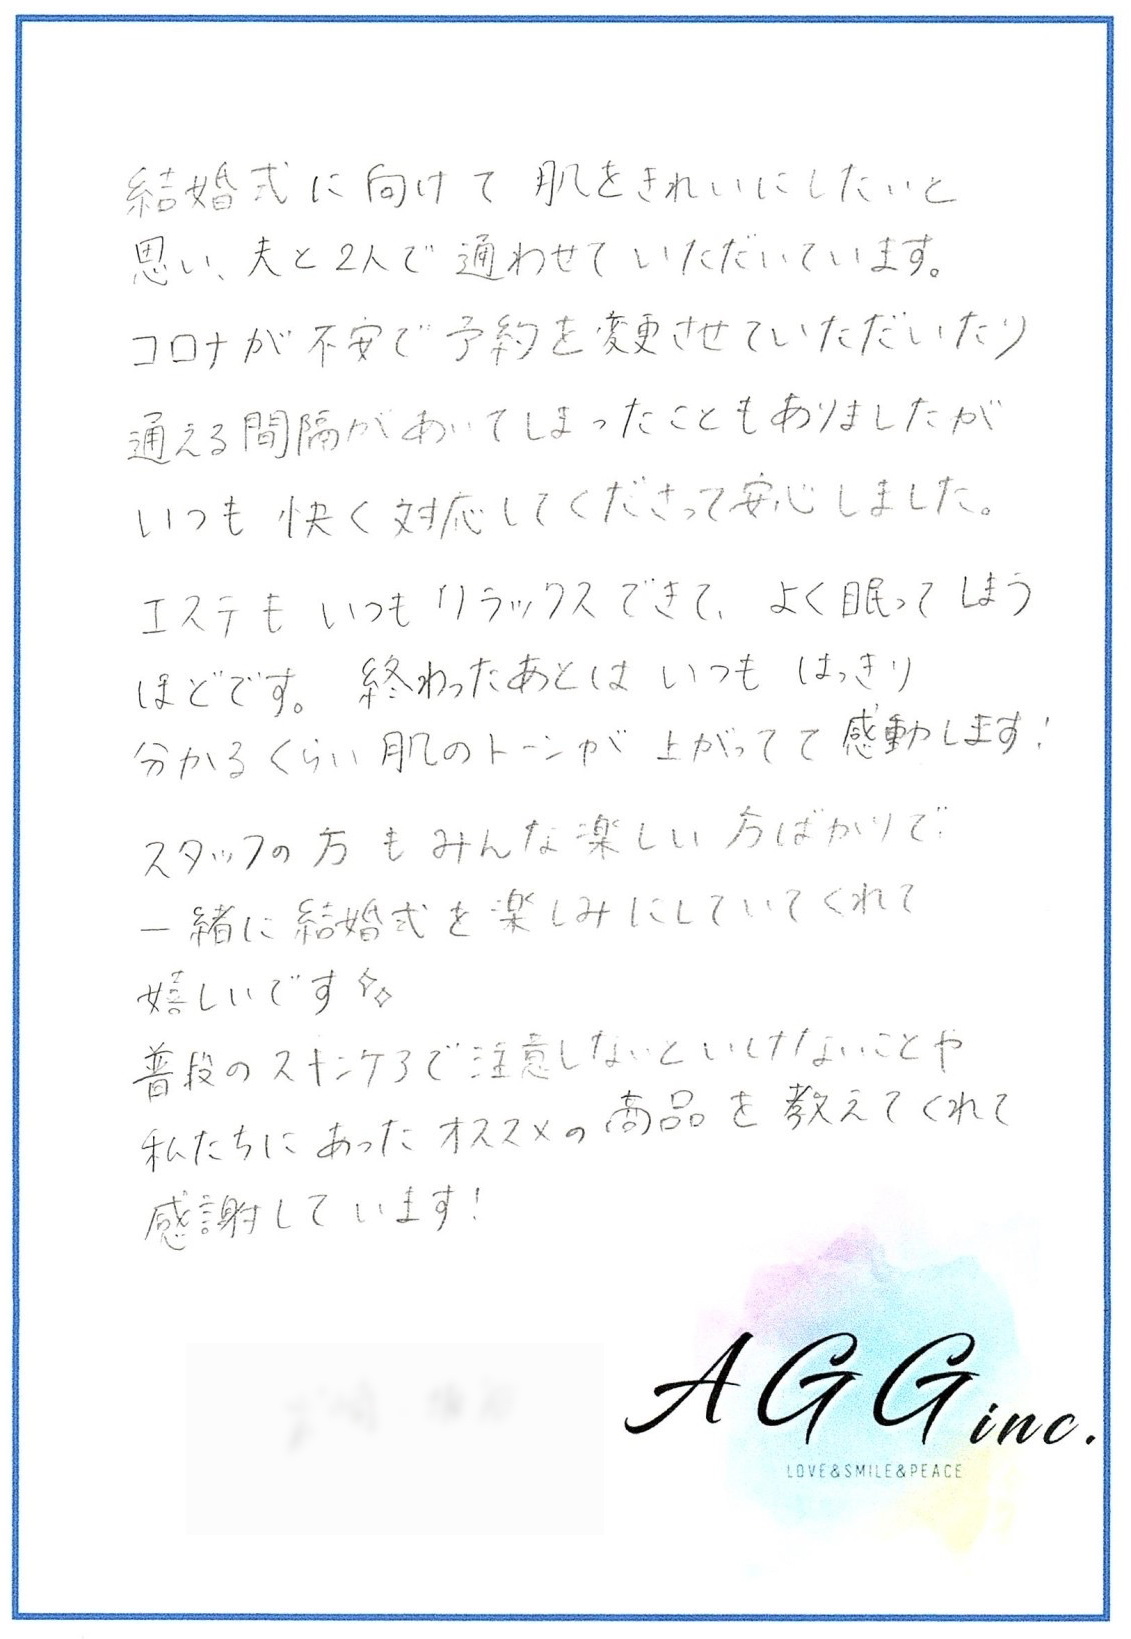 結婚式に向けて 肌をきれいにしたいと
思い、夫と2人で通わせていただいています。
コロナが不安で予約を変更させていただいたり
通える間隔があいてしまったこともありましたが
いつも 快く対応してくださって安心しました。
エステもいつもリラックスできて、よく眠ってしまう
ほどです。終わったあとはいつも はっきり
分かるくらい肌のトーンが上がってて感動します!
スタッフの方もみんな楽しい方ばかりで
一緒に結婚式を楽しみにしていてくれて
嬉しいです✨
普段のスキンケアで注意しないといけないことや
私たちにあったオススメの商品を教えてくれて
感謝しています!
AGG inc.
LOVE&SMILE&PEACE